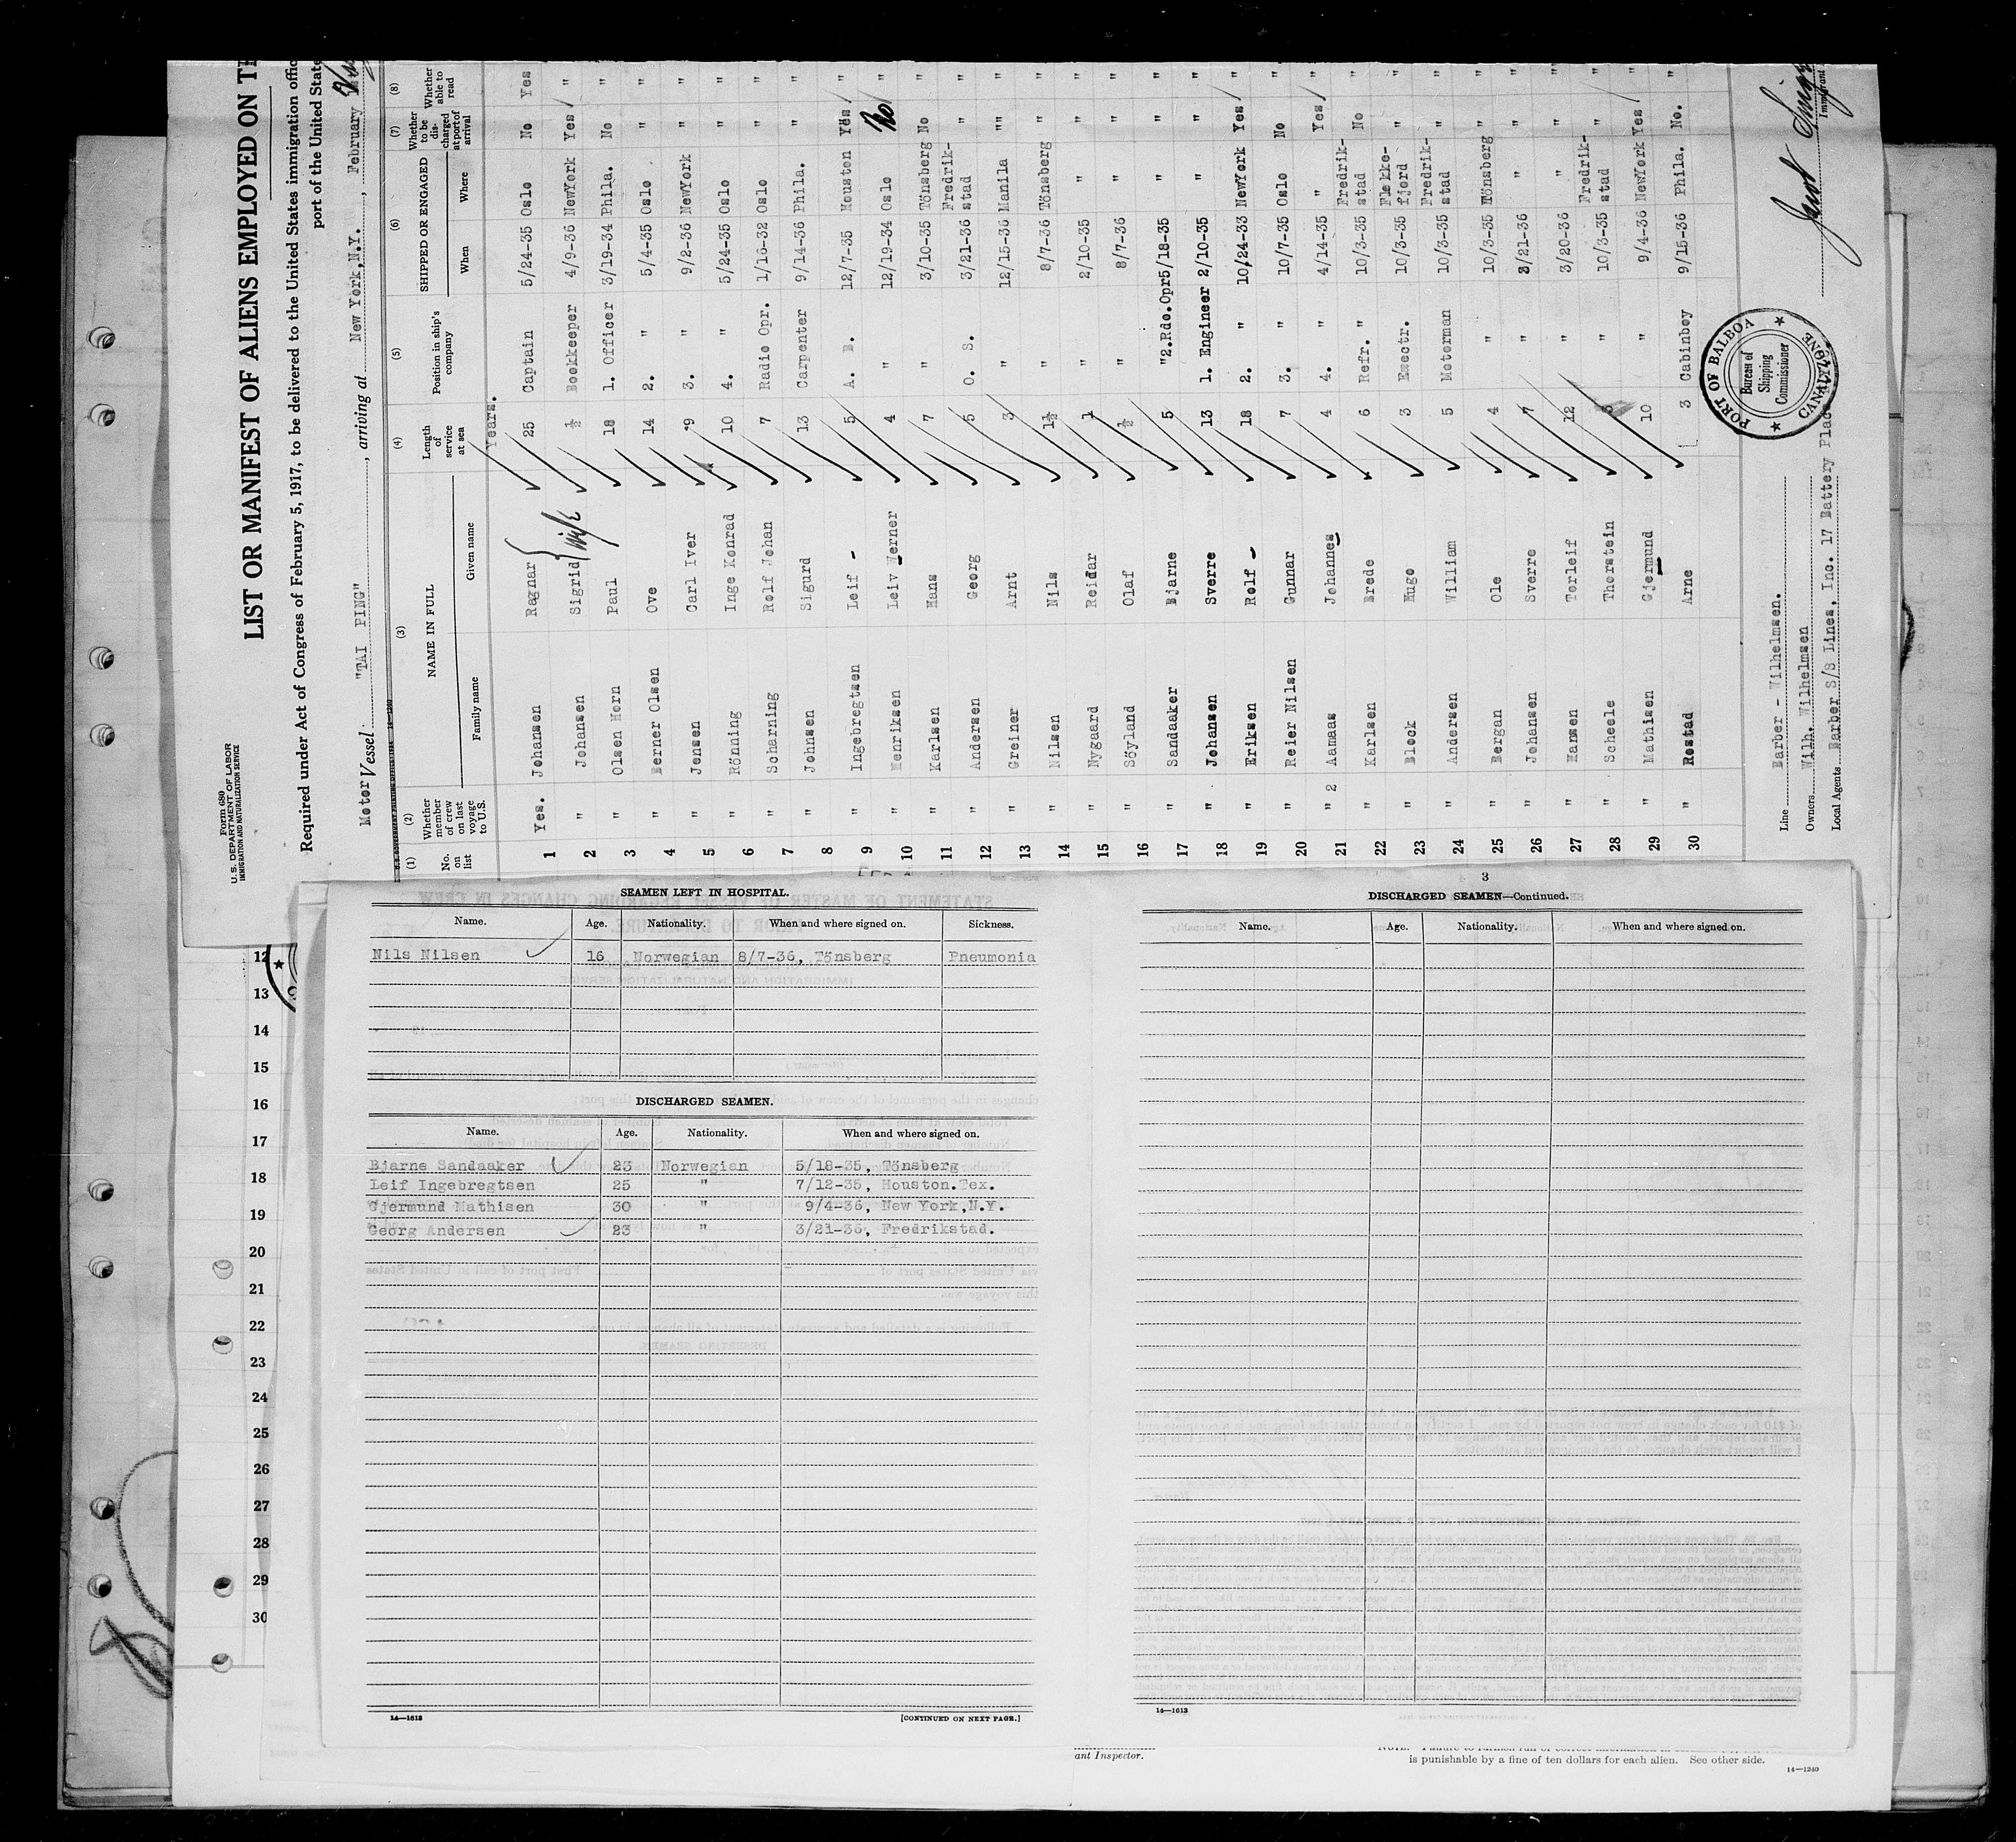 Form 680
U. S. DEPARTMENT OF LABOR
IMMIGRATION AND NATURALIZATION SERVICE
LIST OR MANIFEST OF ALIENS EMPLOYED ON
Required under Act of Congress of February 5, 1917, to be delivered to the United States immigration
port of the United
Motor Vessel "TAI PING", arriving at New York, N.Y., February
(1) No. on list
(2) Whether member of crew on last voyage to U.S.
(3) NAME IN FULL Family name Given name
(4) Length of service at sea
(5) Position in ship's company
(6) SHIPPED OR ENGAGED When Where
(7) Whether to be discharged at port of arrival
(8) Whether able to read
Years.
1 Yes. Johansen Ragnar 25 Captain 5/24-35 Oslo No Yes
2 " Johansen Sigrid wife ½ Bookkeeper 4/9-36 NewYork Yes "
3 " Olsen Horn Paul 18 1. Officer 3/19-34 Phila. No "
4 " Berner Olsen Ove 14 2. " 5/4-35 Oslo " "
5 " Jensen Carl Iver 9 3. " 9/2-36 NewYork " "
6 " Rönning Inge Konrad 10 4. " 5/24-35 Oslo " "
7 " Scharning Rolf Johan 7 Radio Opr. 1/16-32 Oslo " "
8 " Johnsen Sigurd 13 Carpenter 9/14-36 Phila. " "
9 " Ingebregtsen Leif 5 A. B. 12/7-35 Houston Yes "
10 " Henriksen Leiv Werner 4 " 12/19-34 Oslo No "
11 " Karlsen Hans 7 " 3/10-35 Tönsberg No "
12 " Andersen Georg 5 O. S. 3/21-36 Fredrik-stad " "
13 " Greiner Arnt 3 " 12/15-36 Manila "" "
14 " Nilsen Nils 1½ " 8/7-36 Tönsberg " "
15 " Nygaard Reidar 1 " 2/10-35 " " "
16 " Söyland Olaf ½ " 8/7-36 " " "
17 " Sandaaker Bjarne 5 "2.Rdo.Opr 5/18-35 " " "
18 " Johansen Sverre 13 1. Engineer 2/10-35 " " "
19 " Eriksen Rolf 18 2. " 10/24-33 NewYork Yes "
20 " Reier Nilsen Gunnar 7 3. " 10/7-35 Oslo No "
21 " 2 Aamaas Johannes 4 4. " 4/14-35 " Yes "
22 " Karlsen Brede 6 Refr. " 10/3-35 Fredrik-stad No "
23 " Block Hugo 3 10/3-35 Flekke-fjord " "
24 " Andersen William 5 Motorman 10/3-35 Fredrik-stad " "
25 " Bergan Ole 4 " 10/3-35 Tönsberg " "
26 " Johansen Sverre 7 " 3/21-36 " " "
27 " Hansen Torleif 12 " 3/20-36 " " "
28 " Scheele Thorstein " 10/3-35 Fredrik-stad " "
29 " Mathisen Gjermund 10 " 9/4-36 NewYork Yes "
30 " Rostad Arne 3 Cabinboy 9/15-36 Phila. No. "
Line Barber - Wilhelmsen.
Owners Wilh. Wilhelmsen
Local Agents Barber S/S Lines, Inc. 17 Battery Place
PORT OF BALBOA
Bureau of
Shipping
Commissioner
CANAL ZONE
SEAMEN LEFT IN HOSPITAL.
Name. Age. Nationality. When and where signed on. Sickness.
Nils Nilsen 16 Norwegian 8/7-36, Tönsberg Pneumonia
DISCHARGED SEAMEN.
Name. Age. Nationality. When and where signed on.
Bjarne Sandaaker 23 Norwegian 5/18-35, Tönsberg
Leif Ingebregtsen 25 " 7/12-35, Houston.Tex.
Gjermund Mathisen 30 " 9/4-36, New York,N.Y.
Georg Andersen 23 " 3/21-36, Fredrikstad.
14—1613
[CONTINUED ON NEXT PAGE.]
3
DISCHARGED SEAMEN—Continued.
Name. Age. Nationality. When and where signed on.
14—1613
12
13
14
15
16
17
18
19
20
21
22
23
24
25
26
27
28
29
30
ant Inspector.
is punishable by a fine of ten dollars for each alien. See other side.
14—1240